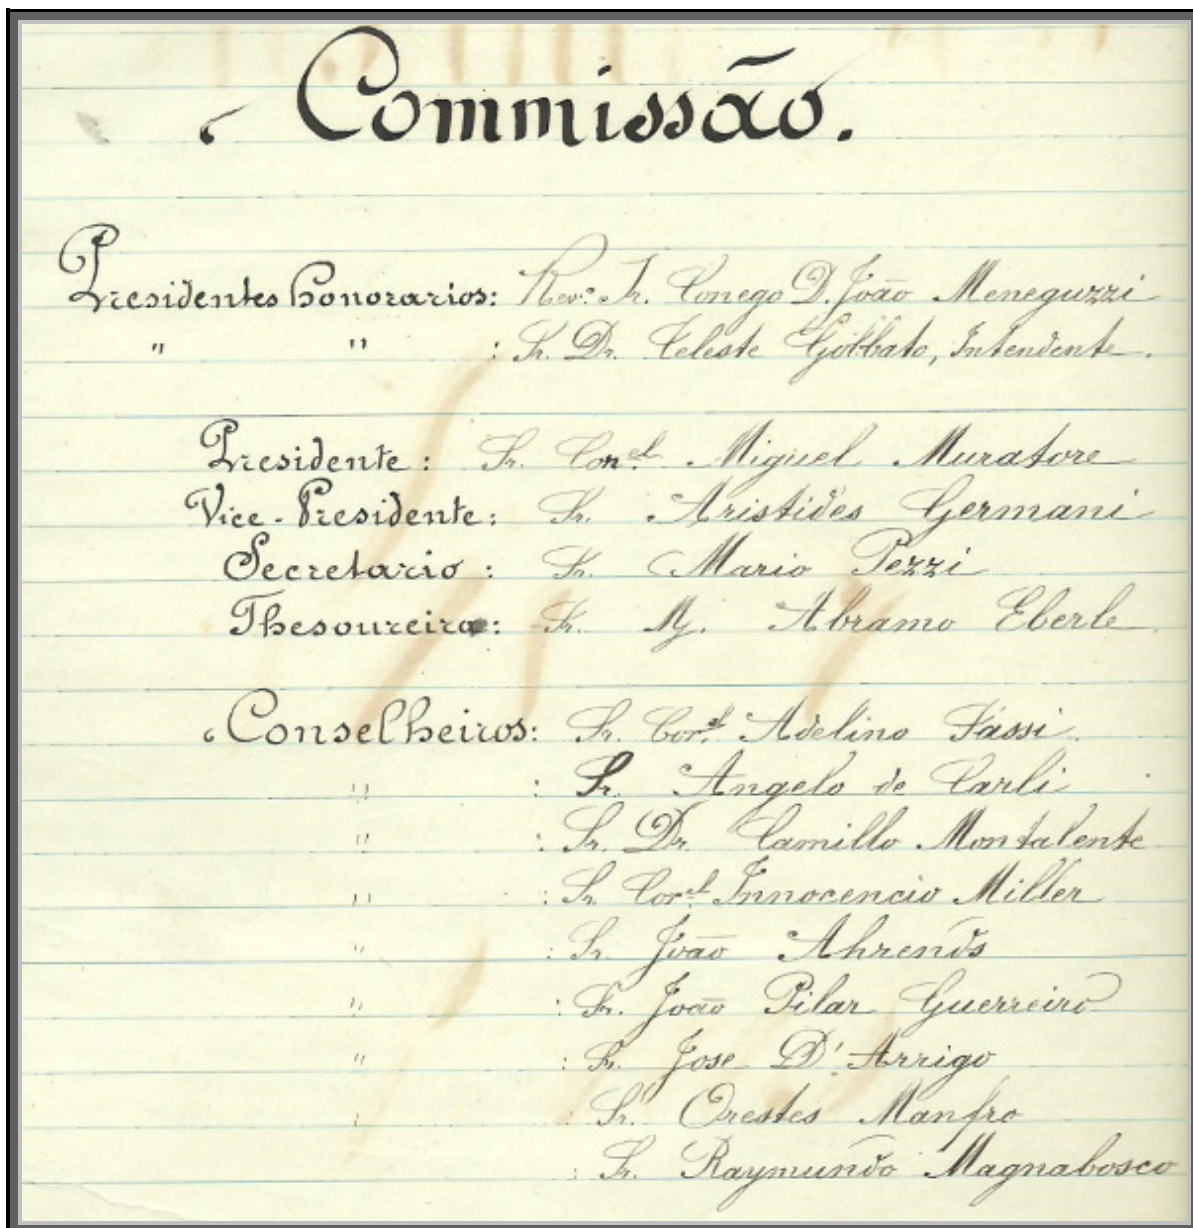 Commissão.
Presidentes honorarios: Revº. Sr. Conego D. João Meneguzzi
" " : Sr. Dr. Celeste Gobbato, Intendente.
Presidente: Sr. Conel. Miguel Muratore
Vice-Presidente: Sr. Aristides Germani
Secretario: Sr. Mario Pezzi
Thesoureiro: Sr. Mj. Abramo Eberle.
Conselheiros: Sr. Corel. Adelino Sassi.
" : Sr. Angelo de Carli
" : Sr. Dr. Camillo Montalente
" : Sr. Corel. Innocencio Miller
" : Sr. João Ahrends
" : Sr. João Pilar Guerreiro
" : Sr. Jose D'Arrigo
" : Sr. Orestes Manfro
: Sr. Raymundo Magnabosco